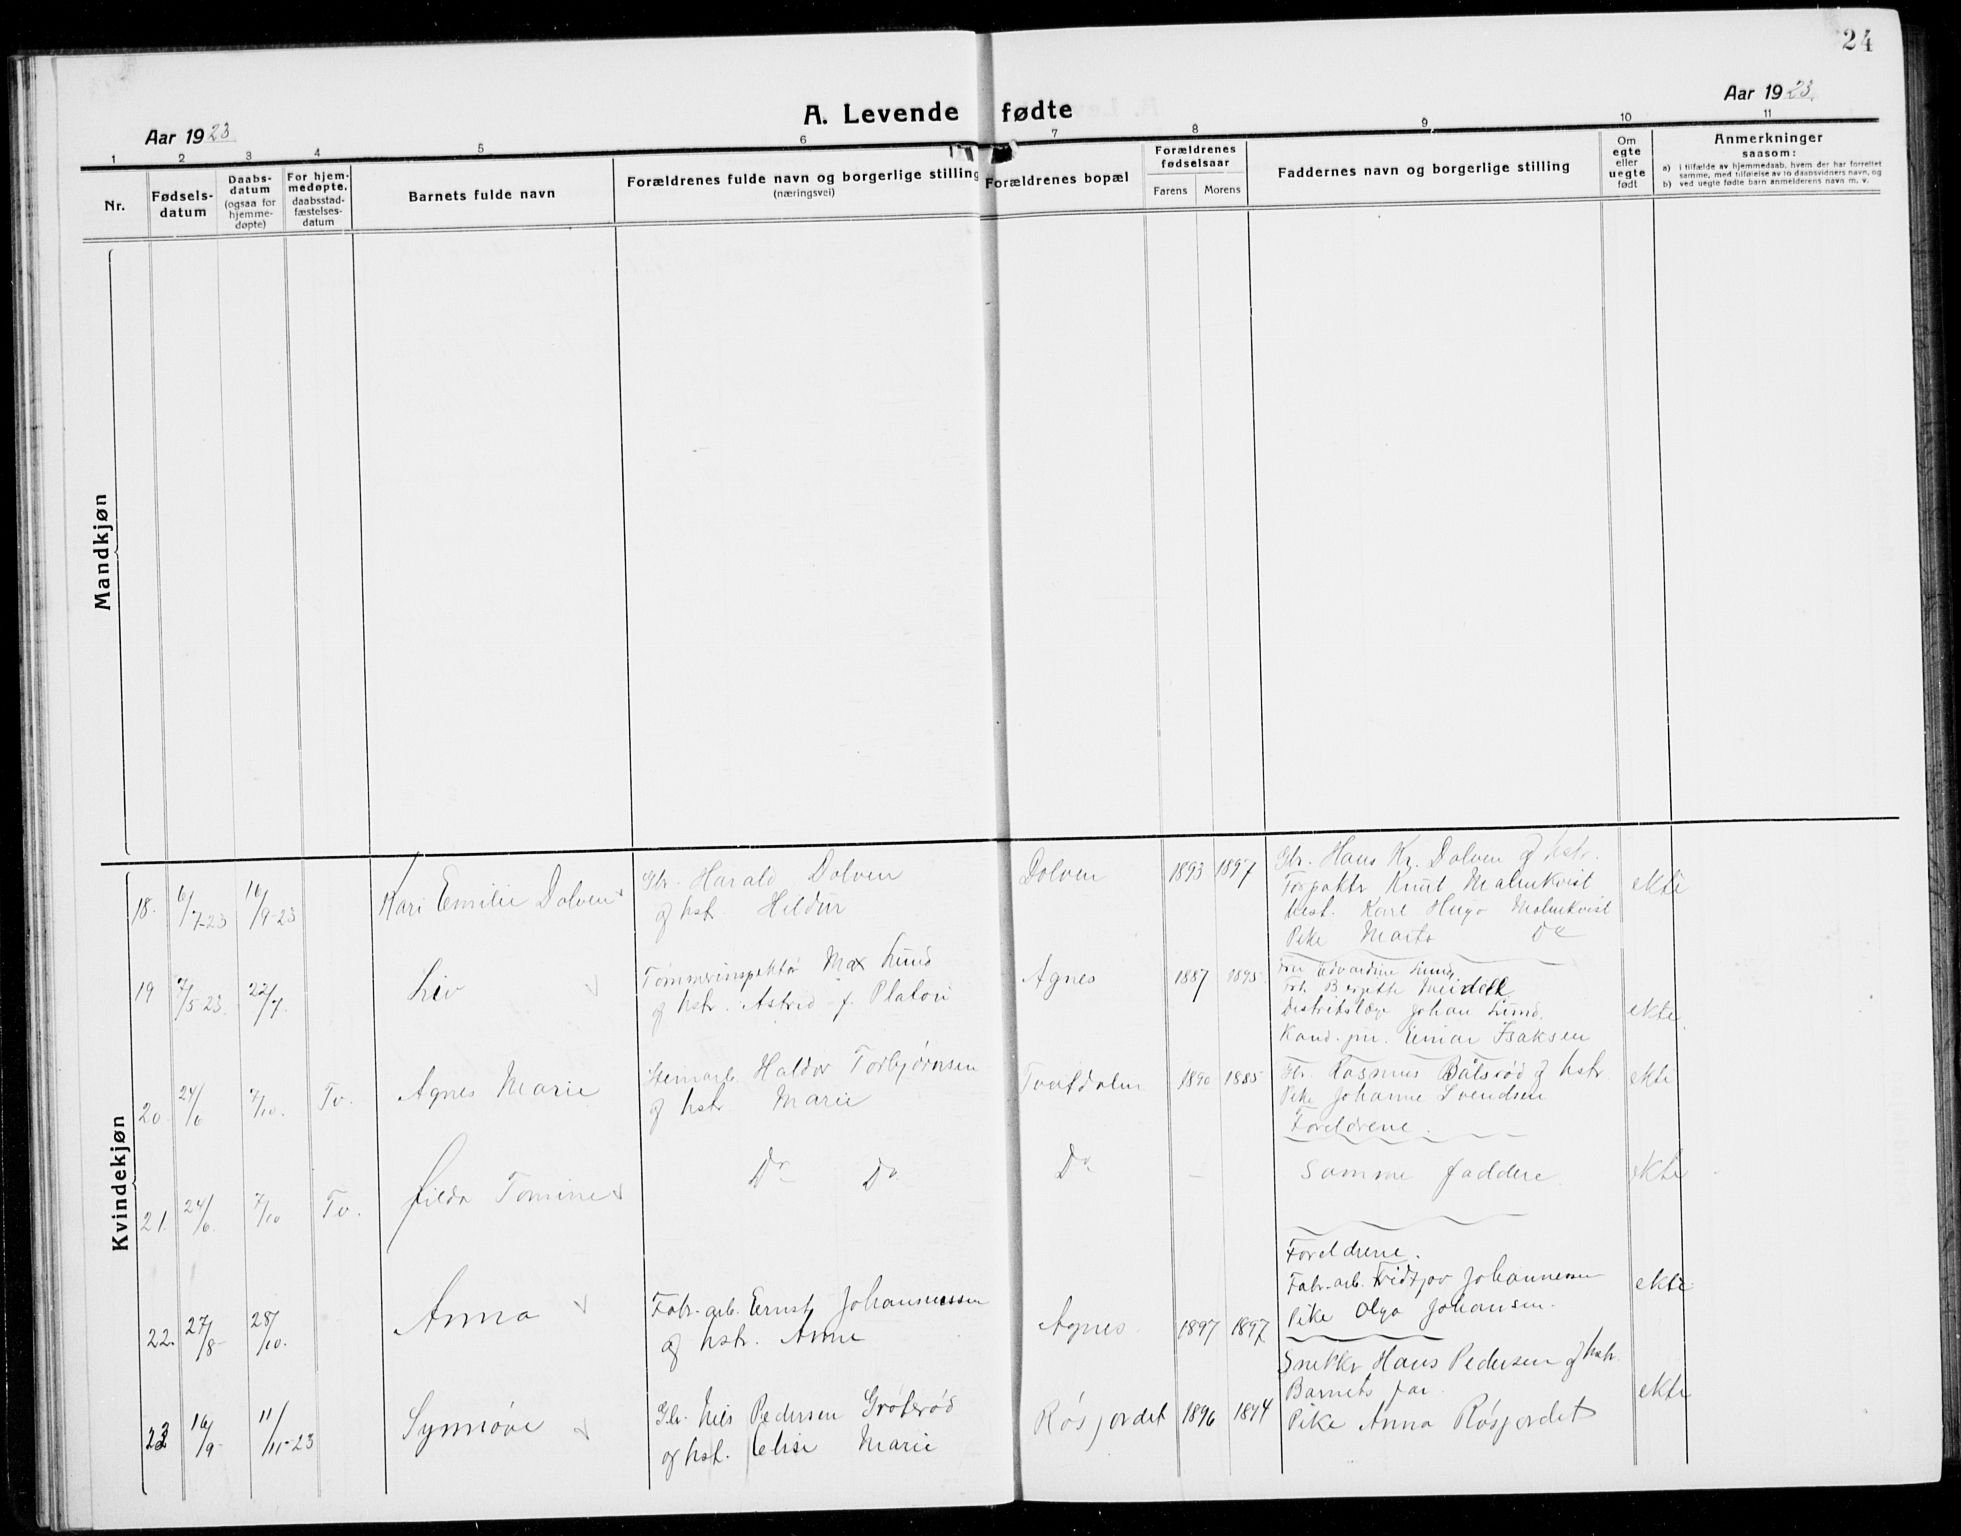 24
Aar 1923
A. Levende fødte
Aar 1923.
1 2 3 4 5 6 7 8 9 10 11
Nr.
Fødsels-
datum
Daabs-
datum
(ogsaa for
hjemme-
døpte)
For hjem-
medøpte,
daabsstad-
fæstelses-
datum
Barnets fulde navn
Forældrenes fulde navn og borgerlige stilling
(næringsvei)
Forældrenes bopæl
Forældrenes
fødselsaar
Farens Morens
Faddernes navn og borgerlige stilling
Om
egte
eller
uegte
født
Anmerkninger
saasom:
a) i tilfælde av hjemmedaab, hvem der har forrettet
samme, med tilføielse av to daabsvidners navn, og
b) ved uegte fødte barn anmelderens navn m. v.
Mandkjøn
Kvindekjøn
18. 6/7-23 16/9-23 Kari Emilie Dolven
Gbr. Harald Dolven
og hstr. Hildur
Dolven 1893 1897
Gbr. Hans Kr. Dolven og hstr.
Forpakter Knut Malmkvist
Karl Hugo Malmkvist
Pike Marta Do
ekte
19 7/5-23. 22/7. Liv
Tømmerinspektør Max Lund
og hstr. Astrid f. Platou
Agnes 1887 1895.
Fru Edvardine Lund
Distriktslæge Johan Lund.
Kand. jur. Einar Isaksen
ekte.
20. 24/6 7/10. Tv. Agnes Marie
Stenarb. Haldor Torbjørnsen
og hstr. Marie
Tveitdalen 1890 1885
Gbr. Rasmus Bålsrød og hstr
Pike Johanne Svendsen
Foreldrene.
ekte
21. 24/6. 7/10 Tv. Hilda Tomine
Do Do
Do —
Samme faddere.
ekte
22. 27/8- 28/10. Anna
Fabr.-arb. Ernst Johannessen
og hstr. Anne
Agnes. 1897 1897
Foreldrene.
Fabr.-arb. Fridtjov Johannessen
Pike Olga Johansen.
ekte
23 16/9- 11/11-23 Synnøve
Gbr. Nils Pedersen Grøterød
og hst. Elise Marie
Røsjordet 1896 1894
Snekker Hans Pedersen og hstr.
Barnets far.
Pike Anna Røsjordet
ekte